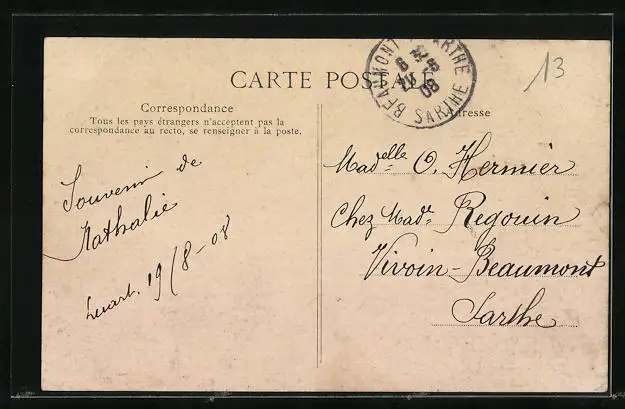 CARTE POSTALE
BEAUMONT S SARTHE
6
20 -8
08
SARTHE
13
Correspondance
Tous les pays étrangers n'acceptent pas la
correspondance au recto, se renseigner à la poste.
Adresse
Souvenir de
Nathalie
19/8-08
Madelle O. Hermier
Chez Made Regouin
Vivoin-Beaumont
Sarthe